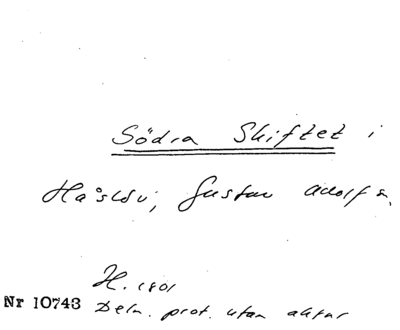 Södra Skiftet i
Håslöv, Gustav Adolf s.
H. 1801
Nr 10743 Deln. prot. utan aktnr